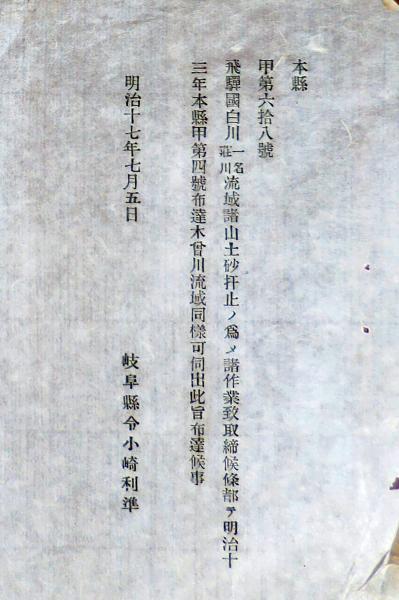 本縣
甲第六拾八號
飛驒國白川一名莊川流域諸山土砂扞止ノ爲メ諸作業致取締候條都テ明治十
三年本縣甲第四號布達木曾川流域同樣可伺出此旨布達候事
明治十七年七月五日
岐阜縣令小崎利準